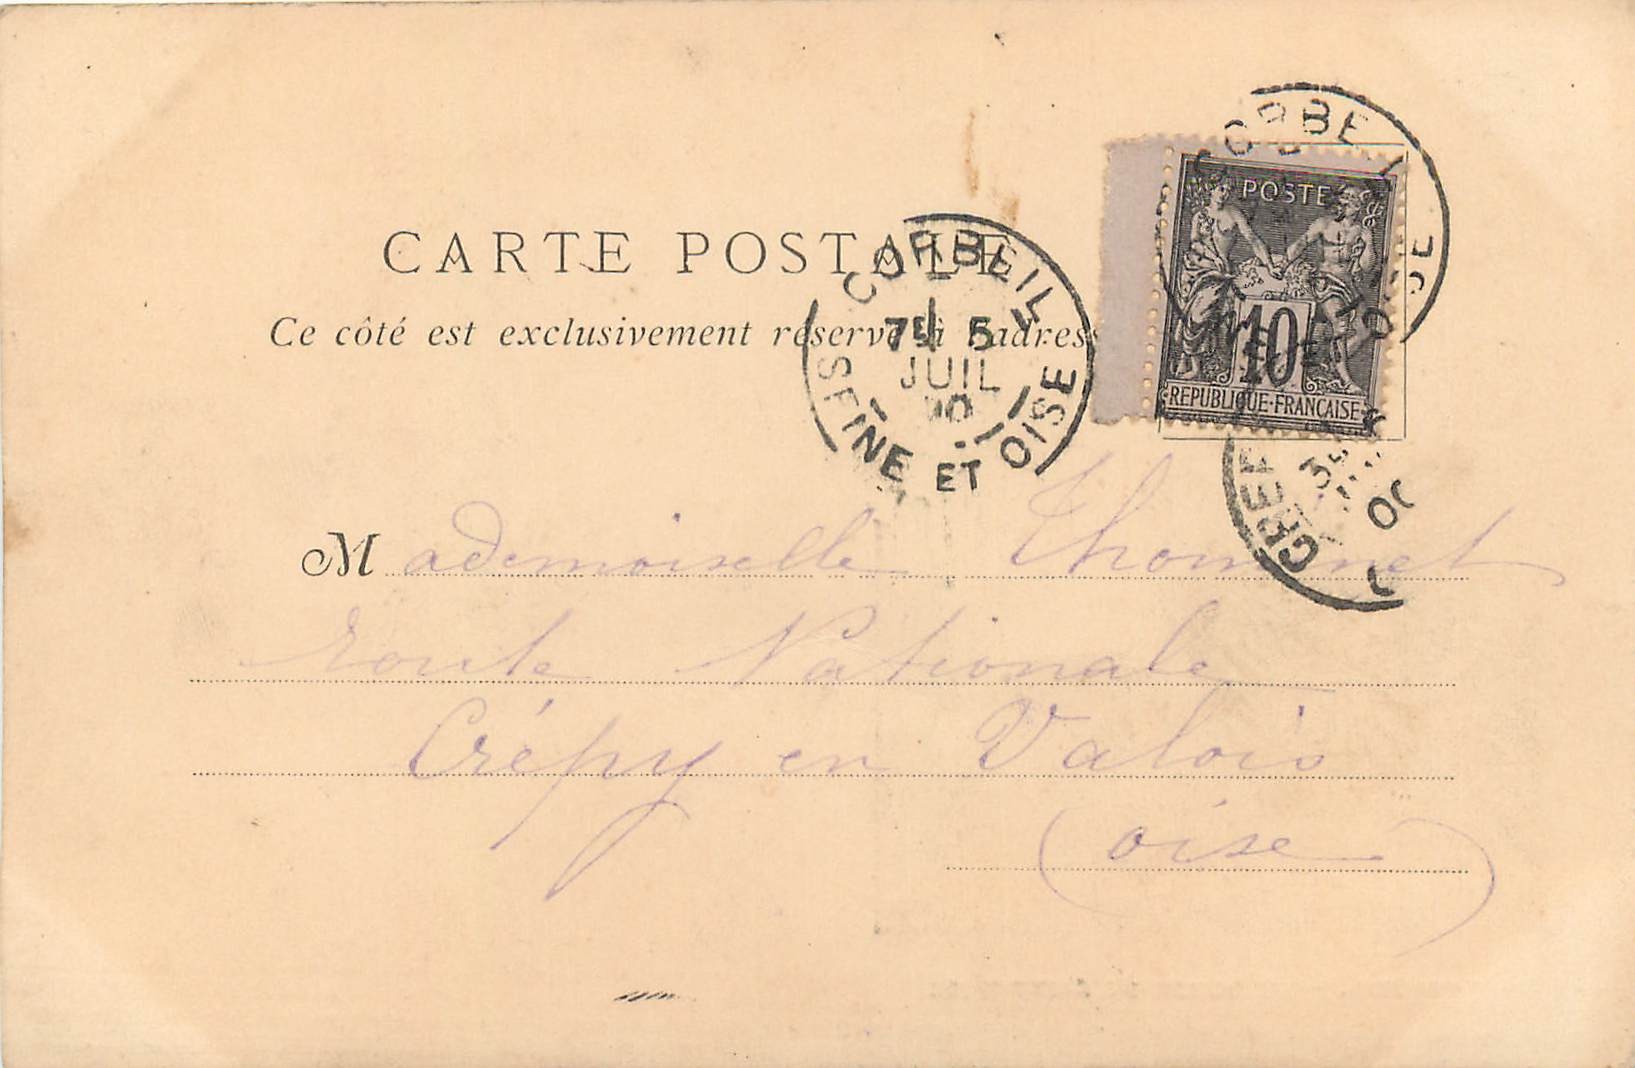 CARTE POSTALE
Ce côté est exclusivement réservé à l'adresse
CORBEIL
7E 5
JUIL
00
SEINE ET OISE
CORBEIL
POSTE
10
REPUBLIQUE FRANÇAISE
OISE
CREP
00
Mademoiselle Thominet
route Nationale
Crépy en Valois
(oise)